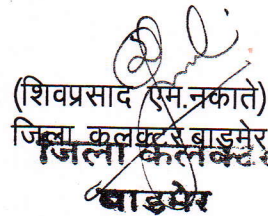 (शिवप्रसाद एम.नकाते)
जिला कलक्टर बाड़मेर
जिला कलक्टर
बाड़मेर